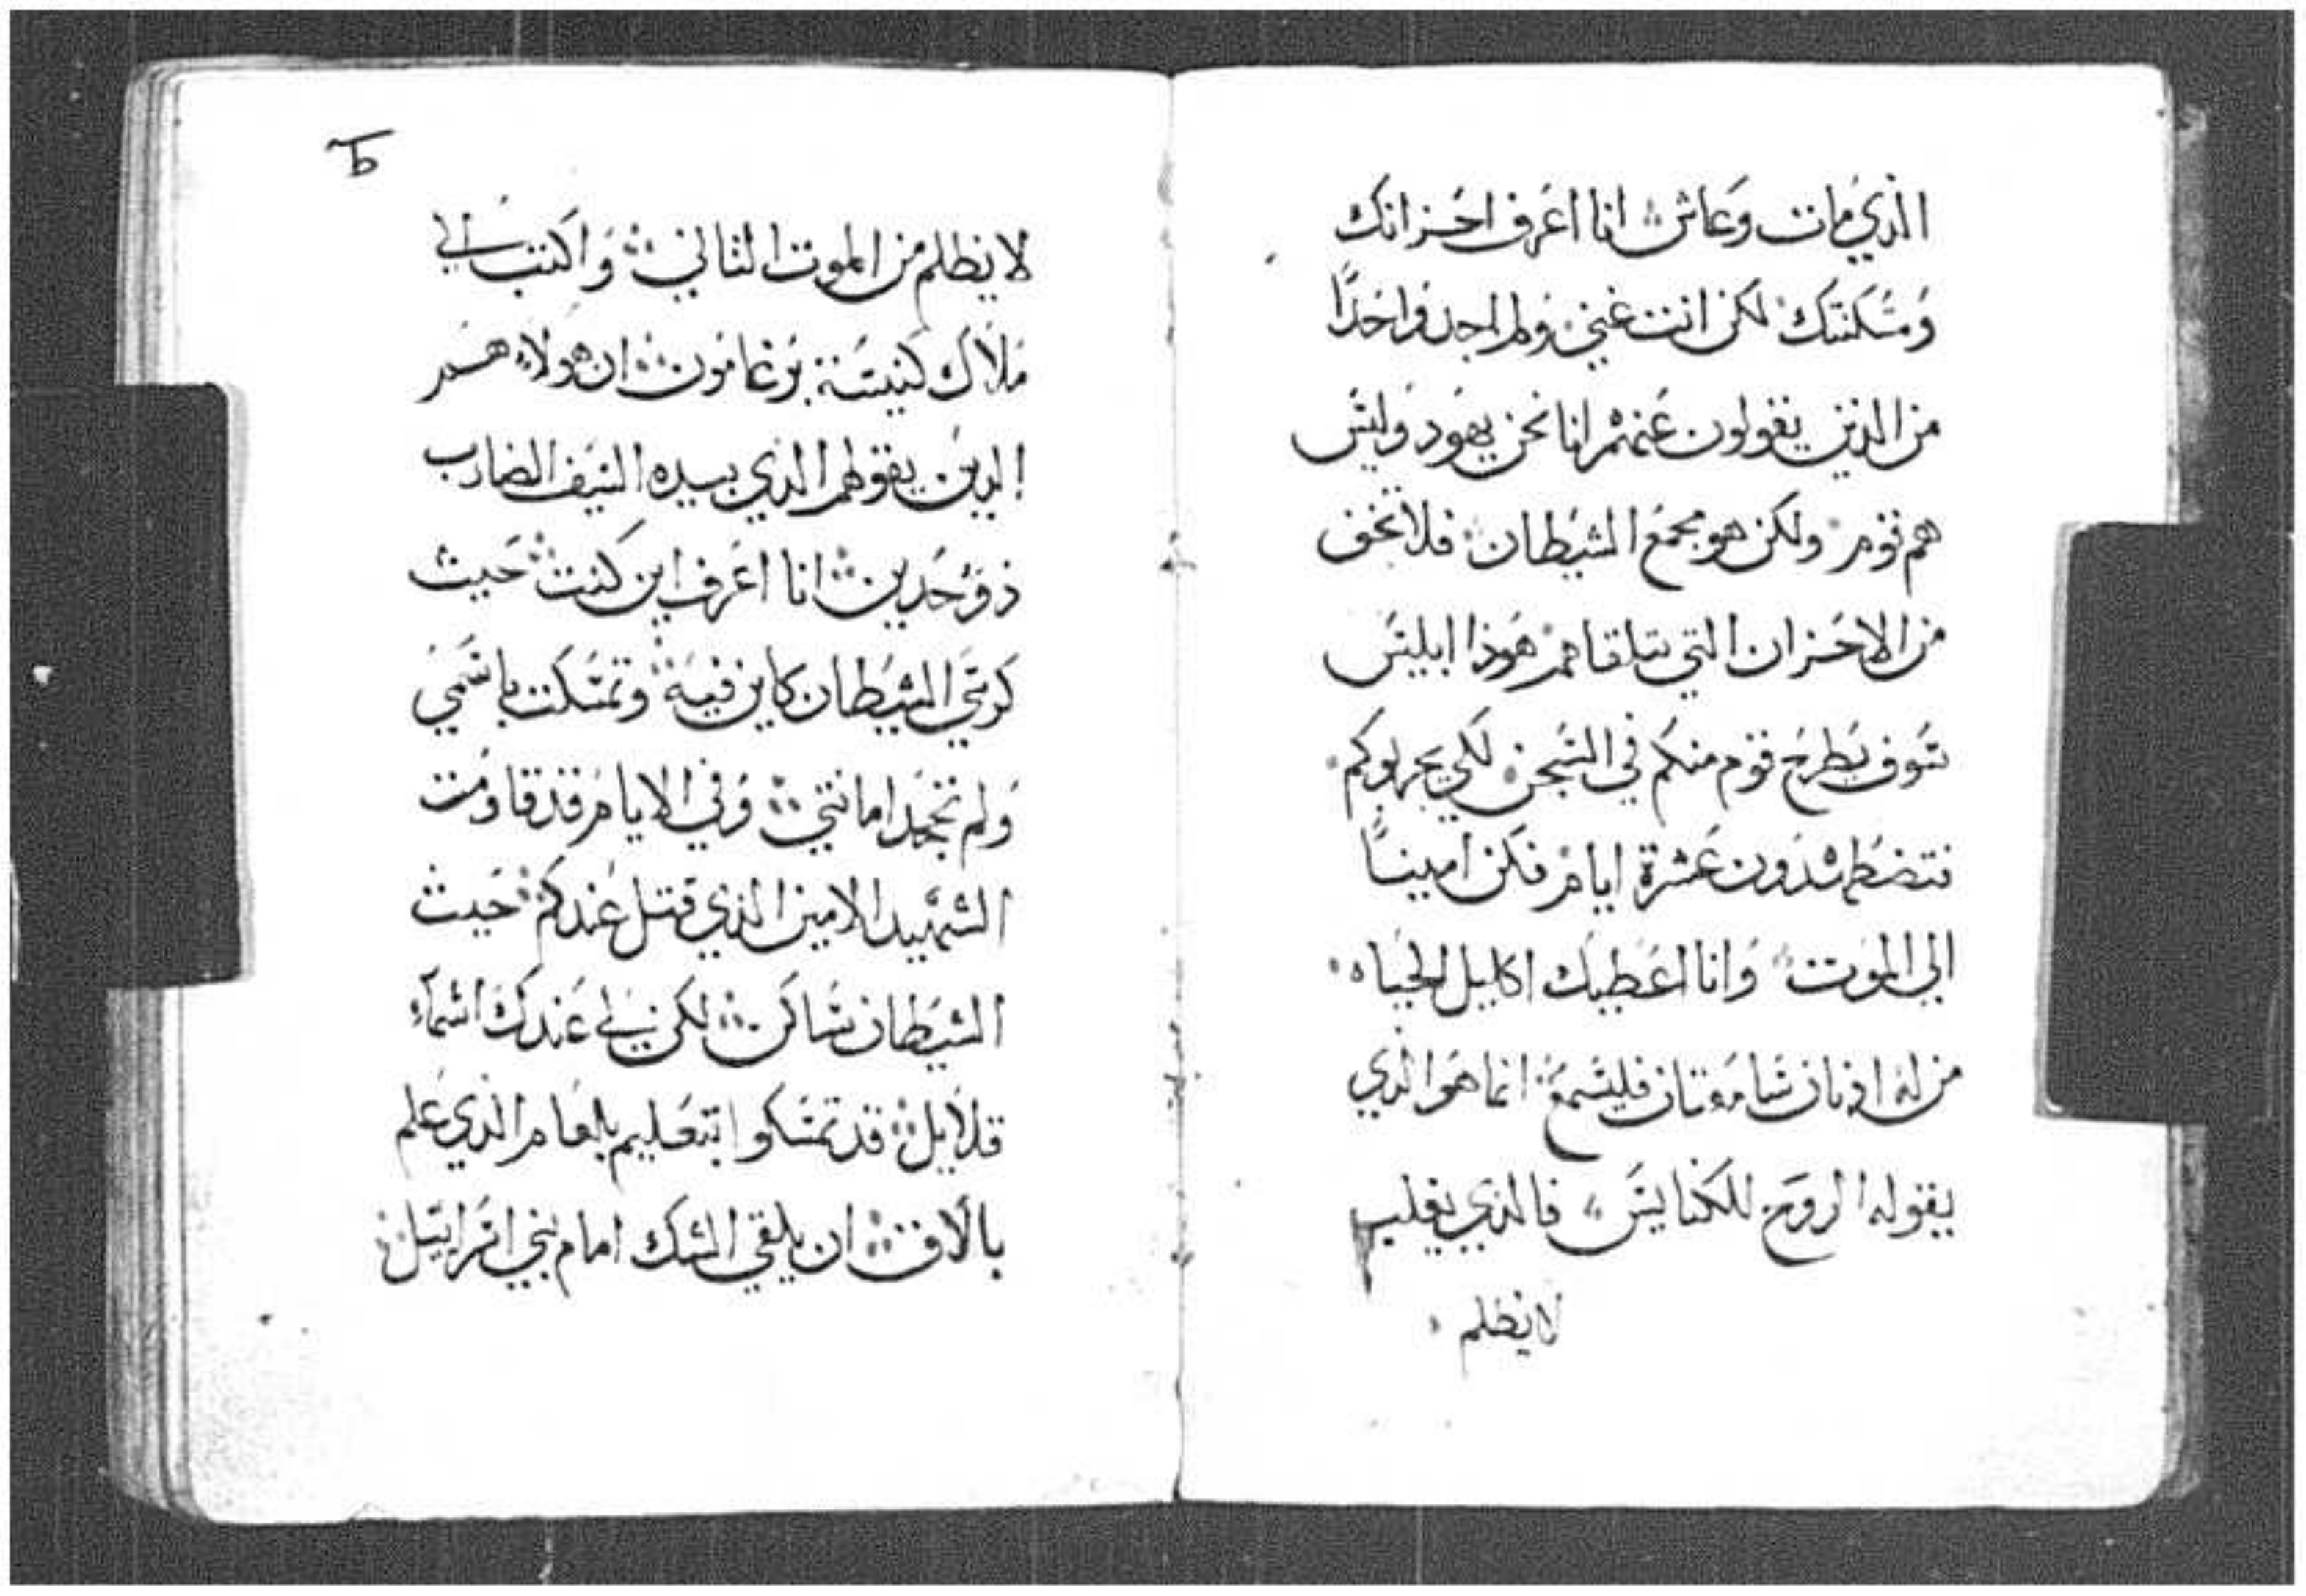 الذي مات وعاش انا اعرف احزانك
ومسكنتك لكن انت غني ولم اجد واحدًا
من الذين يقولون عنهم انا نحن يهود وليس
هم قوم ولكن هو مجمع الشيطان فلا تخف
من الاحزان التي تتلقاهم هوذا ابليس
سوف يطرح قوم منكم في السجن لكي يجربوكم
فتضطهدون عشرة ايام فكن امينًا
الي الموت وانا اعطيك اكليل الحياه
من له اذنان سامعتان فليسمع انما هو الذي
يقوله الروح للكنايس فالذي يغلب
لا يظلم
لا يظلم من الموت الثاني واكتب الي
ملاك كنيسة برغامون ان هولاء هم
الدين يقولهم الذي بيده السيف الضارب
ذو حدين انا اعرف اين كنت حيث
كرسي الشيطان كاين فيه وتمسكت باسمي
ولم تجحد امانتي وفي الايام قد قاومت
الشهيد الامين الذي قتل عندكم حيث
الشيطان ساكن لكن لي عندك اسمآء
قلايل قد تمسكوا بتعليم بلعام الذي علم
بالاق ان يلقي الشك امام بني اسراييل